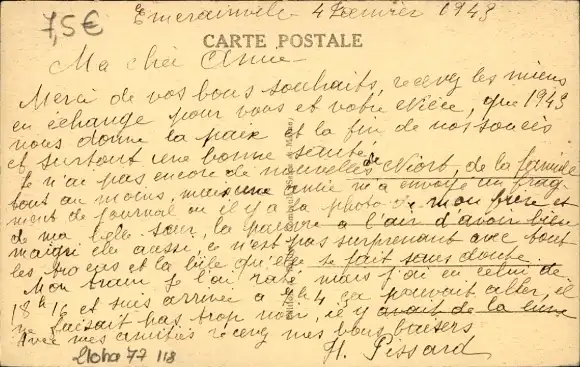 7,5€
Emerainville 4 Janvier 1943
CARTE POSTALE
Ma chée Amie
Merci de vos bons souhaits, recevez les miens
en échange pour vous et votre Nièce, que 1943
nous donne la paix et la fin de nos soucis
et surtout une bonne santé.
Je n'ai pas encore de nouvelles de Niort, de la famille
tout au moins, mais une amie m'a envoyé un frag-
ment de journal où il y a la photo de mon frère et
de ma belle sœur, la pauvre a l'air d'avoir bien
maigri elle aussi, ce n'est pas surprenant avec tout
les tracas et la bile qu'elle se fait sans doute.
Mon train je l'ai raté mais j'ai eu celui de
18h16 et suis arrivée à ça pouvait aller, il
ne faisait pas trop noir, il y avait de la lune
Avec mes amitiés recevez mes bons baisers
H. Pissard
77 118